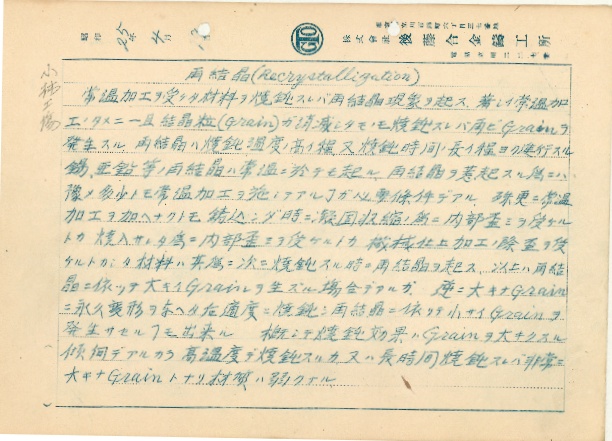 株式會社 後藤合金鑄工所
昭和 25年 4月
再結晶(Recrystallization)
常温加工ヲ受ケタ材料ヲ焼鈍スレバ再結晶現象ヲ起ス、著シイ常温加
工ノタメニ一旦結晶粒(Grain)ガ消滅シタモノモ焼鈍スレバ再ビGrainヲ
発生スル、再結晶ハ焼鈍温度ノ高イ程又焼鈍時間ノ長イ程ヨク進行スル
錫、亜鉛等ノ再結晶ハ常温ニ於テモ起ル、再結晶ヲ惹起スル為ニハ
豫メ多少トモ常温加工ヲ施シテアルコトガ必要條件デアル、殊更ニ常温
加工ヲ加ヘナクトモ鋳込ンダ時ニ凝固収縮ノ為ニ内部歪ミヲ受ケル
トカ 焼入サレタ為ニ内部歪ミヲ受ケルトカ 機械仕上加工ノ際歪ヲ受
ケルトカシタ材料ハ其為ニ次ニ焼鈍スル時ニ再結晶ヲ起ス、以上ハ再結
晶ニ依ッテ大キイGrainヲ生ズル場合デアルガ 逆ニ大キナGrain
ニ永久変形ヲ与ヘタ后適度ニ焼鈍シ再結晶ニ依ッテ小サイGrainヲ
発生サセルコトモ出来ル 概シテ焼鈍効果ハGrainヲ大キクスル
傾向デアルカラ 高温度デ焼鈍スルカ 又ハ長時間焼鈍スレバ非常ニ
大キナGrainトナリ材質ハ弱クナル